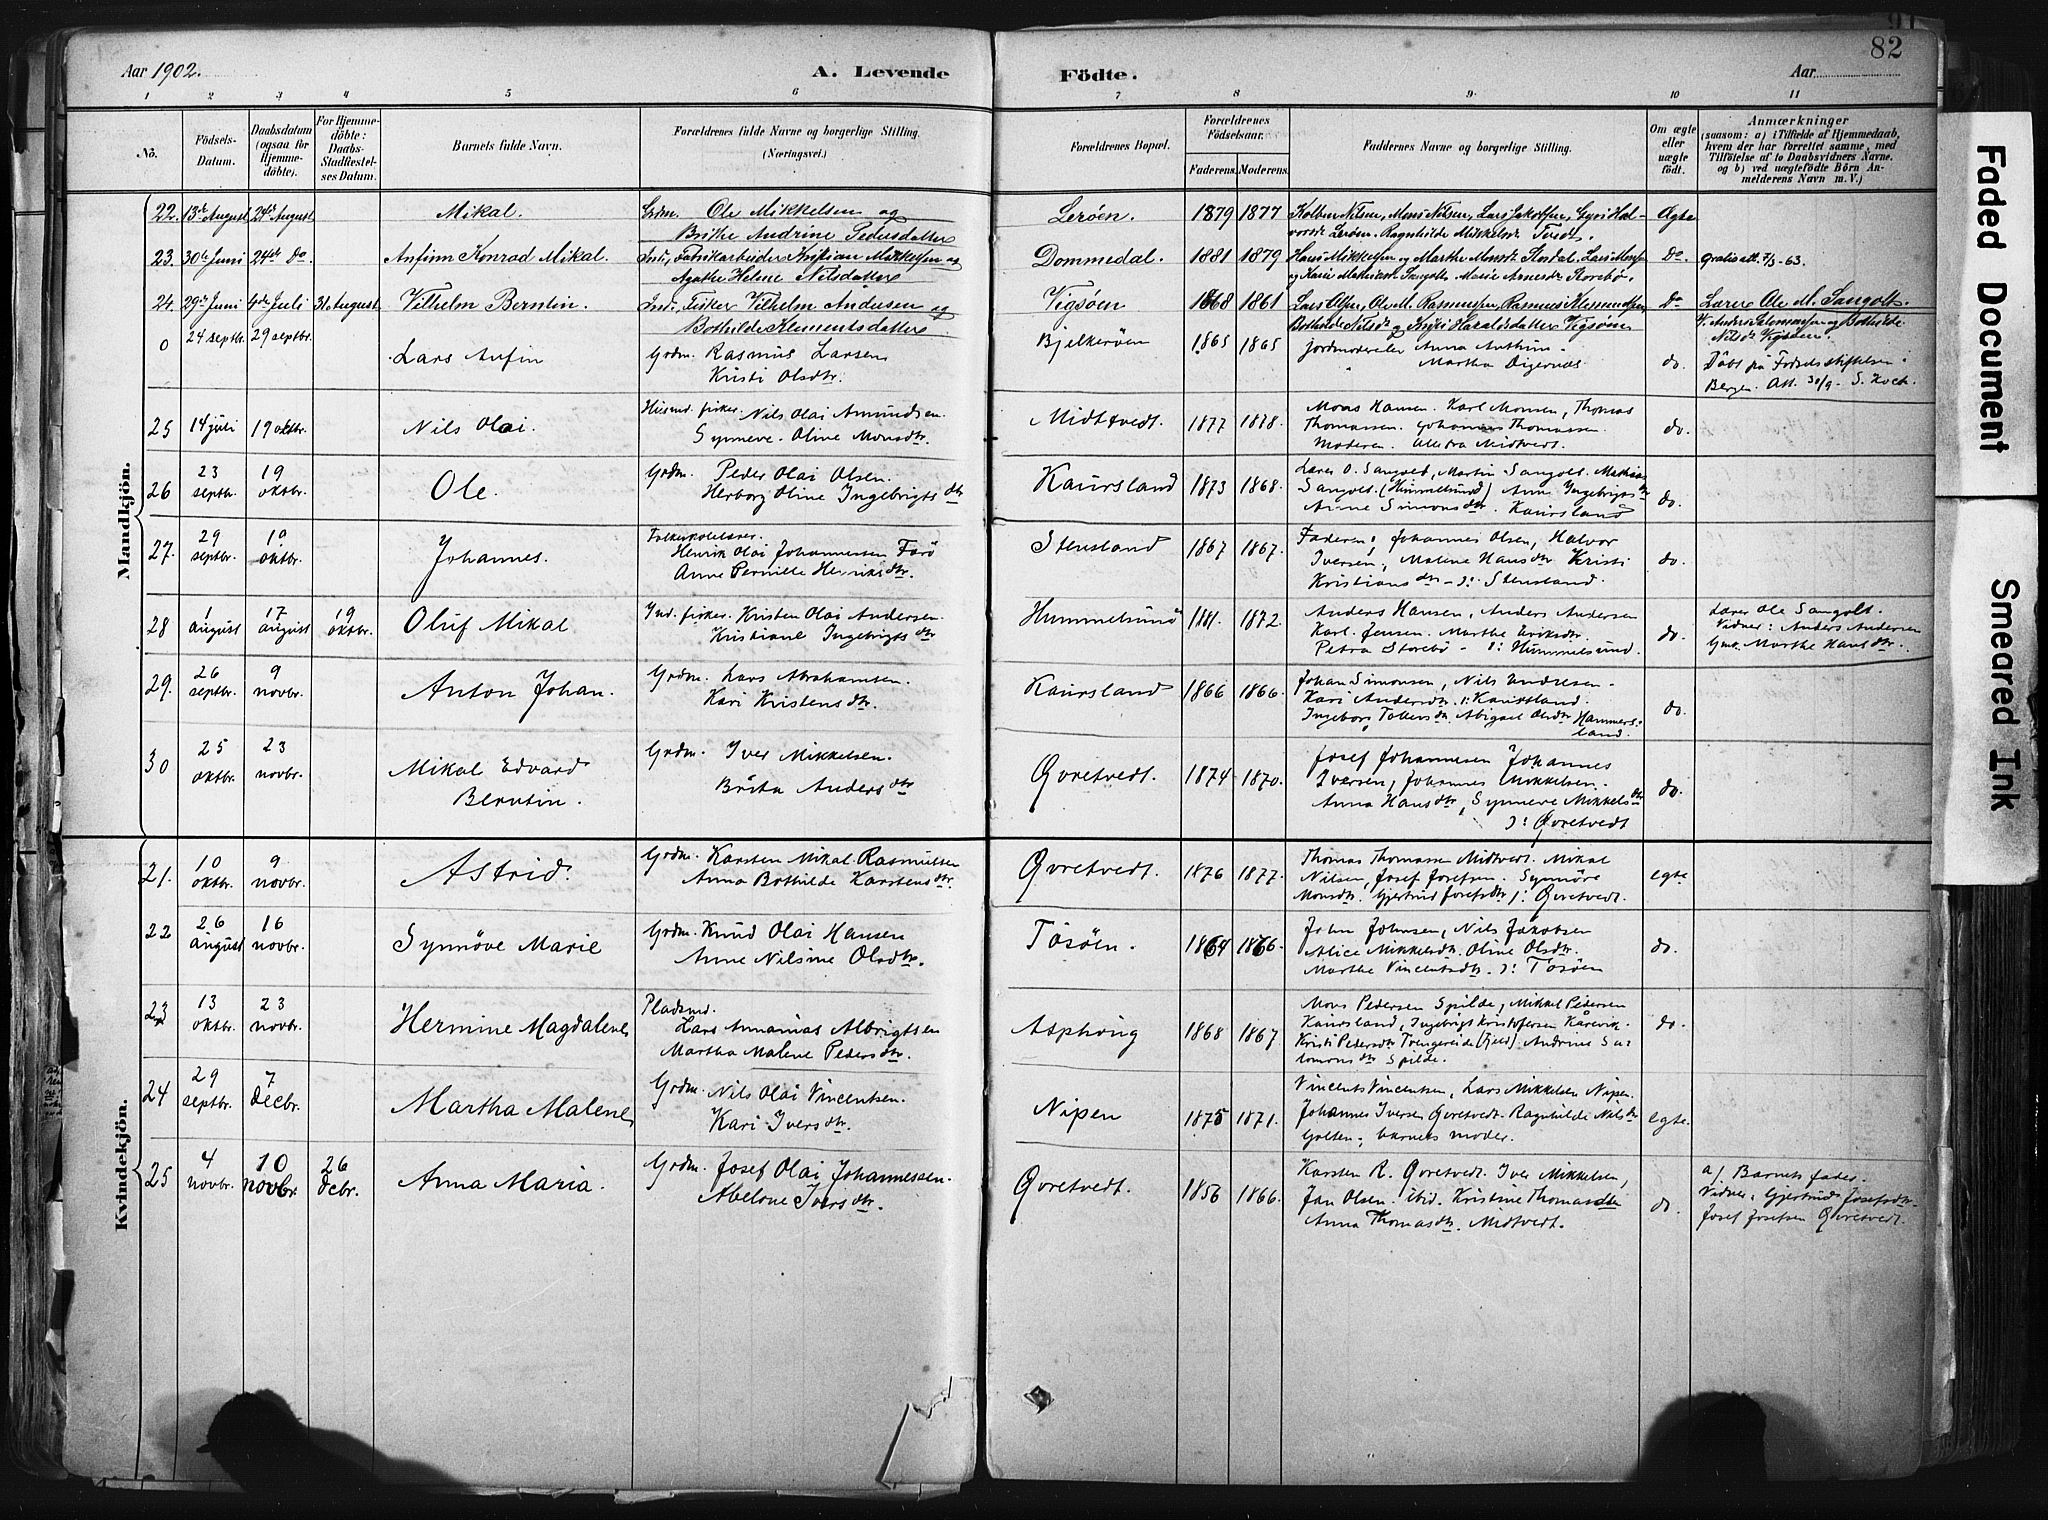 82
Aar 1902.
A. Levende Födte.
Aar
1 2 3 4 5 6 7 8 9 10 11
No.
Födsels-Datum.
Daabsdatum (ogsaa for Hjemmedöbte).
For Hjemmedöbte: Daabs-Stadfæstelses Datum.
Barnets fulde Navn.
Forældrenes fulde Navne og borgerlige Stilling. (Næringsvei.)
Forældrenes Bopæl.
Forældrenes Födselsaar.
Faderens. Moderens.
Faddernes Navne og borgerlige Stilling.
Om ægte eller uægte födt.
Anmærkninger
(saasom: a) i Tilfælde af Hjemmedaab, hvem der har forrettet samme, med Tilföielse af to Daabsvidners Navne, og b) ved uægtefödte Börn Anmelderens Navn m. V.)
Mandkjön.
22. 13de August 24de August Mikal. Grdm. Ole Mikkelsen og Brithe Andrine Pedersdatter Leröen. 1879 1877 Kolben Nilsen, Mons Nilsen, Lars Jakobsen, Ægte
23. 30te Juni 24de Do Anfinn Konrad Mikal. Ind., Fabrikarbeider Kristian Mikkelsen og Agathe Helene Nilsdatter Dommedal. 1881 1879 Hans Mikkelsen og Marthe Do
24. 29de Juni 4de Juli 31 August Vilhelm Berntin. Ind., Fisker Vilhelm Andersen og Bothilde Klementsdatter Vigsöen 1868 1861 Lars Olsen, Ole M. Rasmussen, Rasmus Klementsen, Do Lærer Ole M. Sangolt.
Bothilde Nilsdr og Haraldsdatter Vigsöen V. Anders Salomonsen og Bothilde Nilsdr Vigsöen.
0 24 septbr. 29 septbr. Lars Anfin Grdm. Rasmus Larsen Kristi Olsdtr. Bjelkeröen 1865 1865 Jordmoderelev Anna
Martha Digernæs do. Döbt på Födselsstiftelsen i Bergen. Att. 30/9 - S. Koch.
25 14 juli 19 oktbr. Nils Olai. Husmd. fisker. Nils Olai Amundsen. Synneve Oline Monsdtr. Midttvedt. 1877 1878. Mons Hansen. Karl Monsen, Thomas Thomassen. Johannes Thomassen. Moderen. Midtvedt. do.
26 23 septbr. 19 oktbr. Ole. Grdm. Peder Olai Olsen. Herborg Oline Ingebrigtsdtr Kaursland 1873 1868. Lærer O. Sangolt, Martin Sangolt. Mathias Sangolt. (Himmelsund) Anne Ingebrigtsdtr Anne Simonsdtr. Kaursland do.
27. 29 septbr. 19 oktbr. Johannes. Folkeskolelærer. Henrik Olai Johannessen Farö Anne Pernille Henriksdtr. Stensland 1867 1867. Faderen, Johannes Olsen, Halvor Iversen, Malene Hansdtr Kristi Kristiansdtr - Stensland. do.
28 1 august 17 august 19 oktbr. Oluf Mikal Ind. fisker. Kristen Olai Andersen. Kristiane Ingebrigtsdtr Hummelsund 1881. 1872. Anders Hansen, Anders Andersen Karl Jensen. Marthe Eriksdtr. Petra Storebö - Hummelsund. do. Lærer Ole Sangolt. Vidner: Anders Andersen Marthe Hansdtr.
29. 26 septbr. 9 novbr. Anton Johan. Grdm. Lars Abrahamsen. Kari Kristensdtr. Kaursland 1866 1866. Johan Simonsen, Nils Andresen. Kari Andersdtr. Kaursland. Ingeborg Tollevsdtr. Abigael Olsdtr Hammersland. do.
30 25 oktbr. 23 novbr. Mikal Edvard Berntin. Grdm. Iver Mikkelsen. Brita Andersdtr Qvretvedt. 1874 1870. Josef Johannesen Johannes Iversen, Johannes Mikkelsen. Anna Hansdtr, Synneve Mikkelsdtr Qvretvedt do.
Kvindekjön.
21. 10 oktbr. 9 novbr. Astrid. Grdm. Karsten Mikal Rasmussen Anna Bothilde Karstensdtr. Qvretvedt. 1876 1877. Thomas Thomassen Midtvedt. Mikal Nilsen, Josef Josefsen. Synnöve Monsdtr. Gjertrud Josefsdtr Qvretvedt. egte
22 26 august 16 novbr. Synnöve Marie Grdm. Knud Olai Hansen Anne Nilsine Olsdtr. Tösöen. 1864 1866. John Johnsen, Nils Jakobsen Alice Mikkelsdtr. Oline Olsdtr. Marthe Vincentsdtr. Tosöen do.
23 13 oktbr. 23 novbr. Hermine Magdalene Pladsmd. Lars Annanias Albrigtsen Martha Malene Pedersdtr. Asphöug 1868 1867 Mons Pedersen Spilde, Mikkel Pedersen Kaursland, Ingebrigt Kristofersen Kårevik. Kristi Pedersdtr Trengereide (Fjeld) Andrine Salomonsdtr Spilde. do.
24 29 septbr. 7 decbr. Martha Malene Grdm. Nils Olai Vincentsen. Kari Iversdtr. Nipen 1875 1871. Vincents Vincentsen, Lars Mikkelsen Nipen. Johannes Iversen Qvretvedt. Ragnhilde Nilsdtr Golten, barnets moder. egte.
25 4 novbr. 10 novbr. 26 decbr. Anna Maria. Grdm. Josef Olai Johannessen. Abelone Iversdtr. Qvretvedt. 1856 1866. Karsten R. Qvretvedt. Iver Mikkelsen, Jan Olsen ibid. Kristine Thomasdtr Anna Thomasdtr. Midtvedt. do. a/ Barnets fader. Vidner: Gjertrud Josefsdtr. Josef Josefsen Qvretvedt.
Faded Document
Smeared Ink